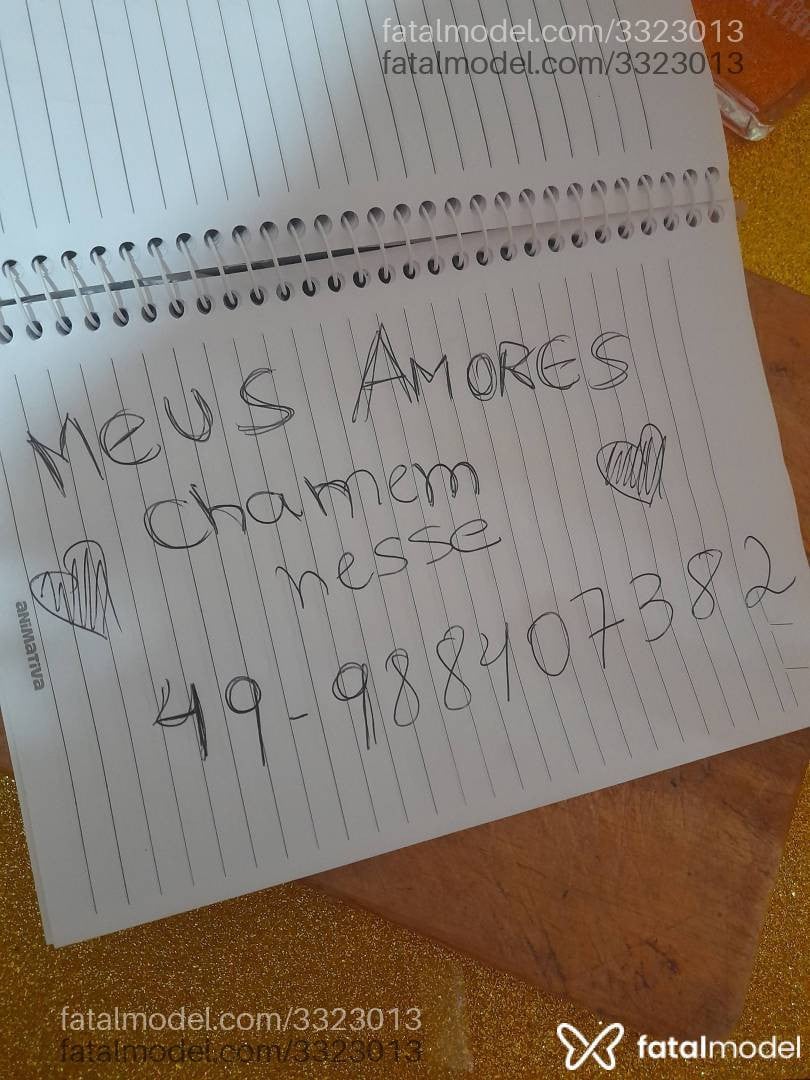 fatalmodel.com/3323013
fatalmodel.com/3323013
MEUS AMORES
chamem
nesse
49-988407382
aNiMaTiVa
fatalmodel.com/3323013
fatalmodel.com/3323013
fatalmodel